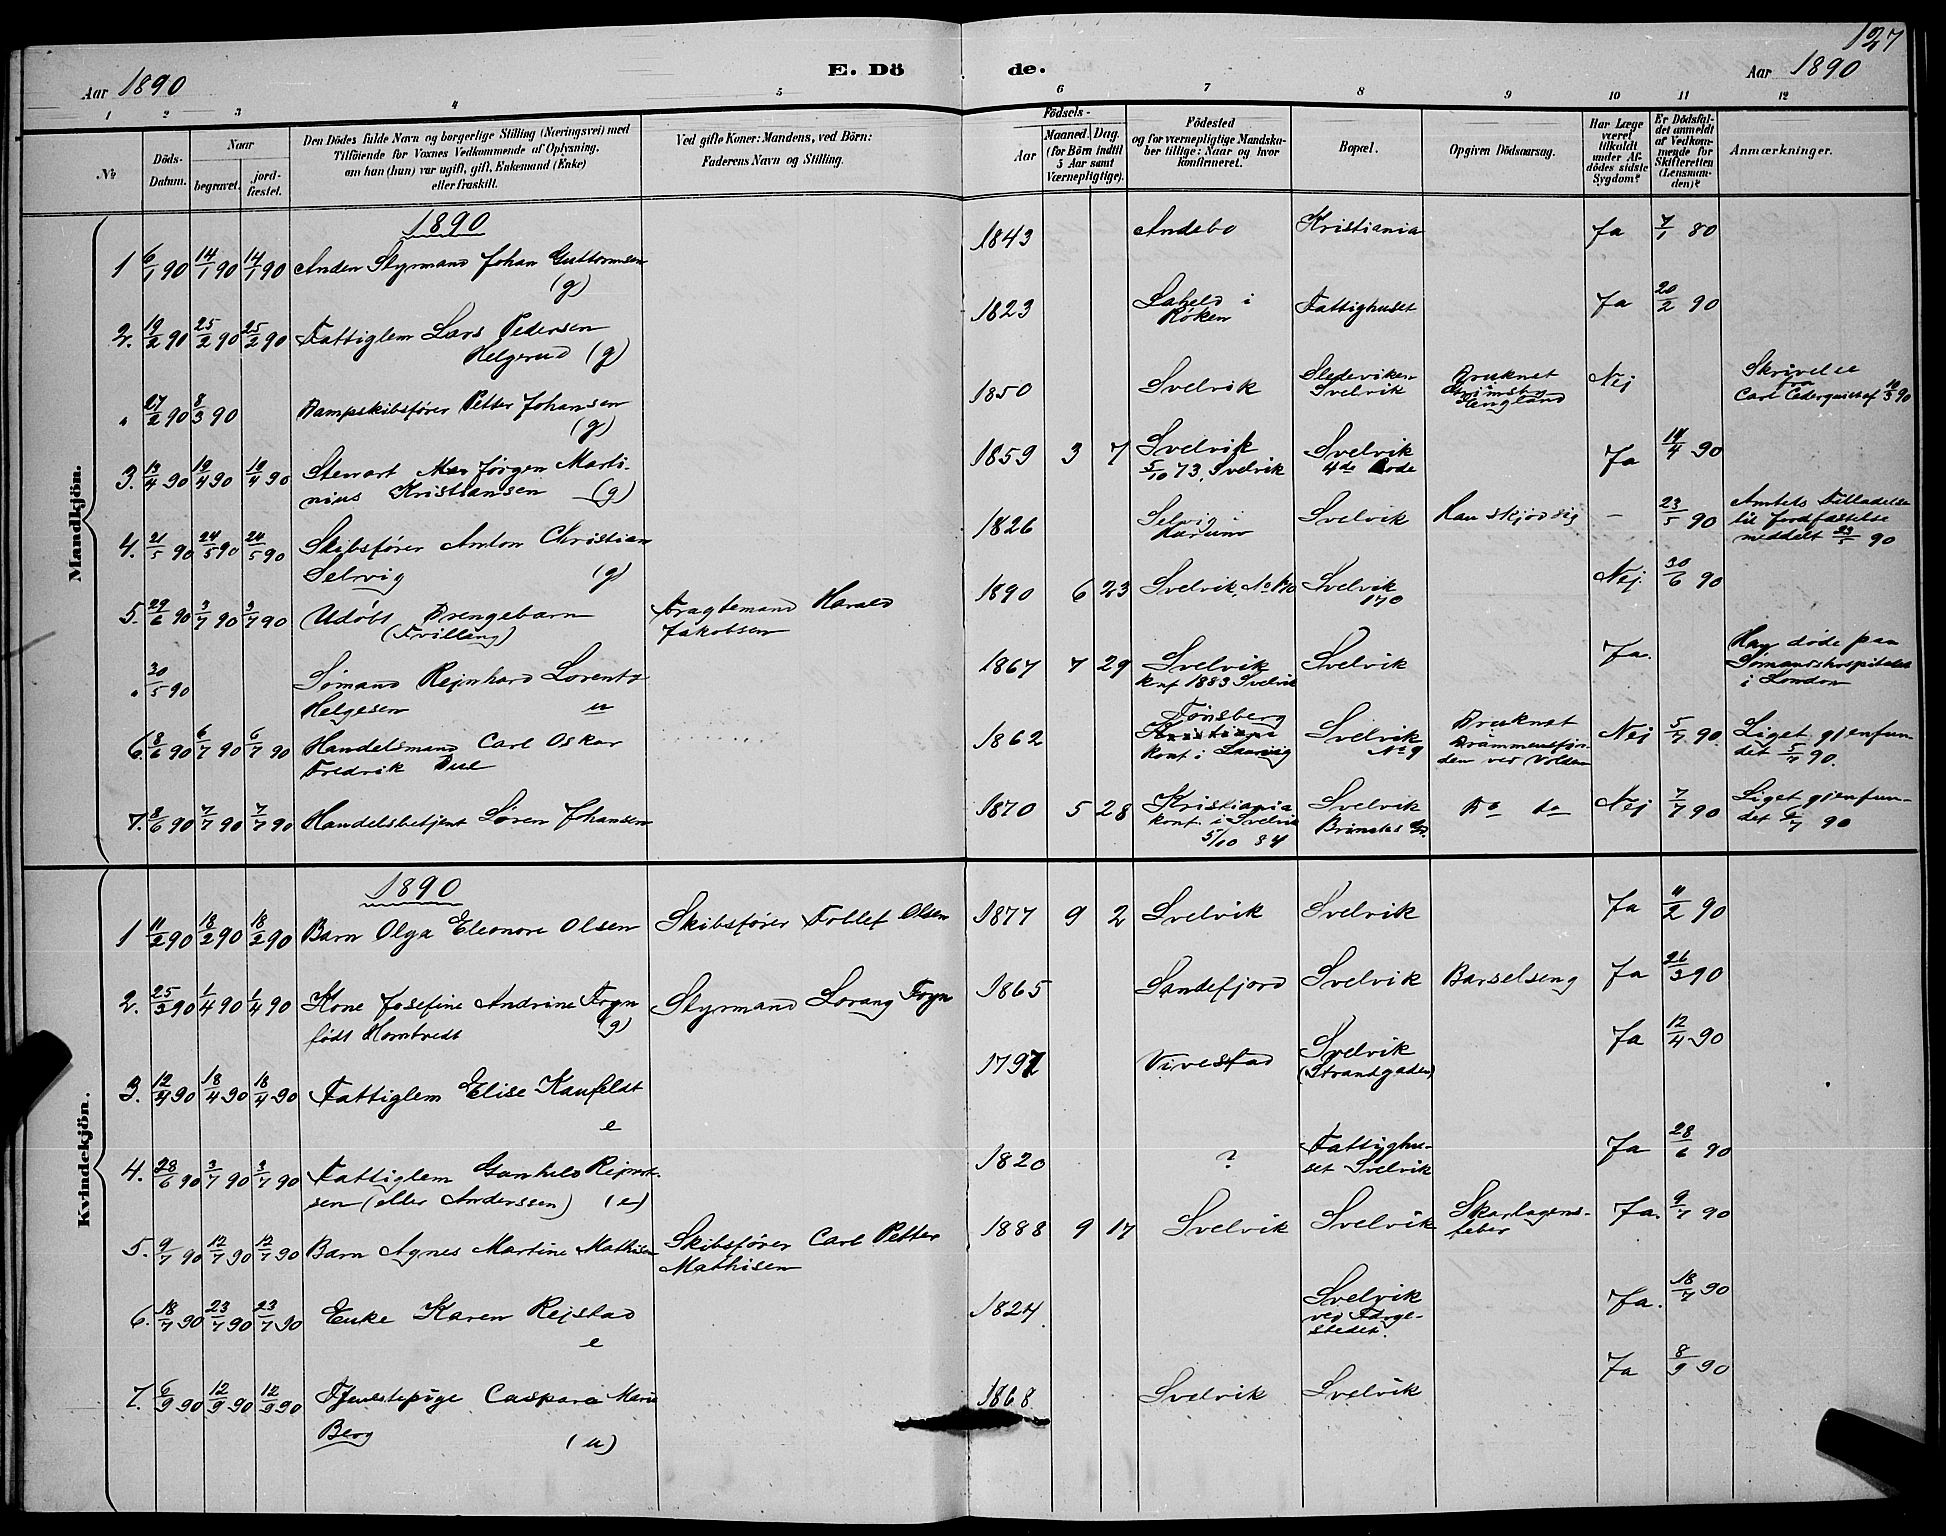 127
Aar 1890
E. Dö de.
Aar 1890
1 2 3 4 5 6 7 8 9 10 11 12
№
Döds-Datum.
Naar
begravet.
jord-fæstet.
Den Dödes fulde Navn og borgerlige Stilling (Næringsvei) med
Tilföiende for Voxnes Vedkommende af Oplysning,
om han (hun) var ugift, gift, Enkemand (Enke)
eller fraskilt.
Ved gifte Koner: Mandens, ved Börn:
Faderens Navn og Stilling.
Födsels-
Aar
Maaned. Dag.
(for Börn indtil
5 Aar samt
Værnepligtige).
Födested
og for værnepligtige Mandska-
ber tillige: Naar og hvor
konfirmeret.
Bopæl.
Opgiven Dödsaarsag.
Har Læge
været
tilkaldt
under Af-
dödes sidste
Sygdom?
Er Dödsfal-
det anmeldt
af Vedkom-
mende for
Skifteretten
(Lensman-
den)?
Anmærkninger.
Mandkjön.
1890
1 6/1 90 14/1 90 14/1 90 Anden Styrmand Johan Guttormsen (g) 1843 Andebo Kristiania Ja 7/1 80
2. 19/2 90 25/2 90 25/2 90 Fattiglem Lars Pedersen
Helgerud (g) 1823 i Røken Fattighuset Ja 20/2 90
" 27/2 90 8/3 90 Dampskibsfører Petter Johansen
(g) 1850 Svelvik Svelvik Druknet Grimsby England Nej Skrivelse
fra
Carl 10/3 90
3. 13/4 90 19/4 90 19/4 90 Stewart Jørgen Marti-
nius Kristiansen (g) 1859 3 7 Svelvik
5/10 73. Svelvik Svelvik
4de Rode Ja 14/4 90
4. 21/5 90 24/5 90 24/5 90 Skibsfører Anton Christian
Selvig (g) 1826 Selvig i Hurum Svelvik Han skjød sig - 23/5 90 Amtets Tilladelse
til Jordfæstelse
meddelt 23/5 90
5. 29/6 90 3/7 90 3/7 90 Udøbt Drengebarn
(Tvilling) Fragtemand Harald
Jakobsen 1890 6 23 Svelvik No 170 Svelvik
170 Nej. 30/6 90
" 30/5 90 Sømand Rejnhard Lorents
Helgesen u 1867 7 29 Svelvik
knf 1883 Svelvik Svelvik Ja. Han døde paa
Sømandshospitalet
i London
6. 8/6 90 6/7 90 6/7 90 Handelsmand Carl Oskar
Fredrik Due 1862 Tønsberg
Kristiania
konf. i Laurvig Svelvik
No 9 Druknet
Drammensfjor-
den ved Volden Nej 5/7 90. Liget gjenfun-
det 5/7 90.
7. 8/6 90 7/7 90 7/7 90 Handelsbetjent Søren Johansen 1870 5 28 Kristiania
konf. i Svelvik
5/10 84 Svelvik Do do Nej 7/7 90 Liget gjenfun-
det 6/7 90
Kvindekjön.
1890
1 11/2 90 18/2 90 18/2 90 Barn Olga Eleonore Olsen Skibsfører Tollef Olsen 1877 9 2 Svelvik Svelvik Ja 11/2 90
2. 25/3 90 1/4 90 1/4 90 Kone Josefine Andrine Fryn (g)
født Homtvedt Styrmand Lorang Fryn 1865 Sandefjord Svelvik Barselseng Ja 26/3 90
3. 12/4 90 18/4 90 18/4 90 Fattiglem Elise Kaufeldt
e 1797 Vivestad Svelvik
(Strandgaden) Ja 12/4 90
4. 28/6 90 3/7 90 3/7 90 Fattiglem Gunhild Rejnert-
sen (eller Anderssen) (e) 1820 ? Fattighu-
set Svelvik Ja 28/6 90
5. 9/7 90 12/7 90 12/7 90 Barn Agnes Martine Mathisen Skibsfører Carl Petter
Mathisen 1888 9 17 Svelvik Svelvik Skarlagens-
feber Ja. 9/7 90
6. 18/7 90 23/7 90 23/7 90 Enke Karen Rejstad
e 1824 Svelvik
ved Færge-
stedet. Ja. 18/7 90
7. 6/9 90 12/9 90 12/9 90 Tjenestepige Caspara Marie
Berg (u) 1868 Svelvik Svelvik Ja 8/9 90